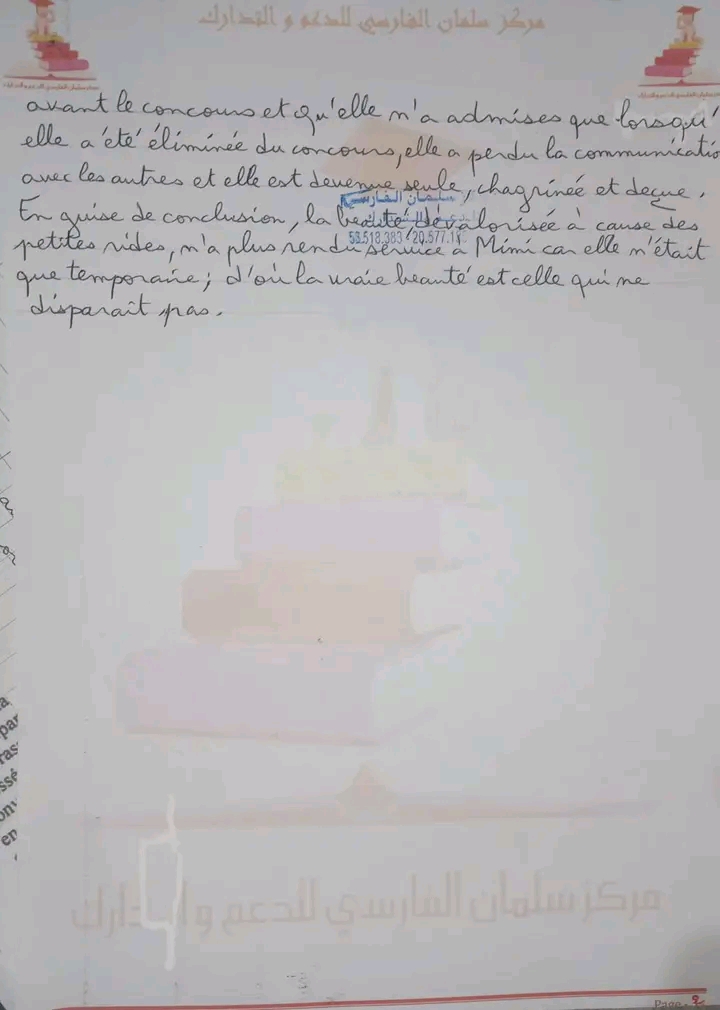 مركز سلمان الفارسي للدعم و التدارك
avant le concours et qu'elle n'a admises que lorsqu'
elle a été éliminée du concours, elle a perdu la communicatio
avec les autres et elle est devenue seule, chagrinée et deçue.
سلمان الفارسي
En guise de conclusion, la beauté, dévalorisée à cause des
petites rides, n'a plus rendu service à Mimi car elle n'était
que temporaire; d'où la vraie beauté est celle qui ne
disparaît pas.
مركز سلمان الفارسي للدعم و التدارك
Page